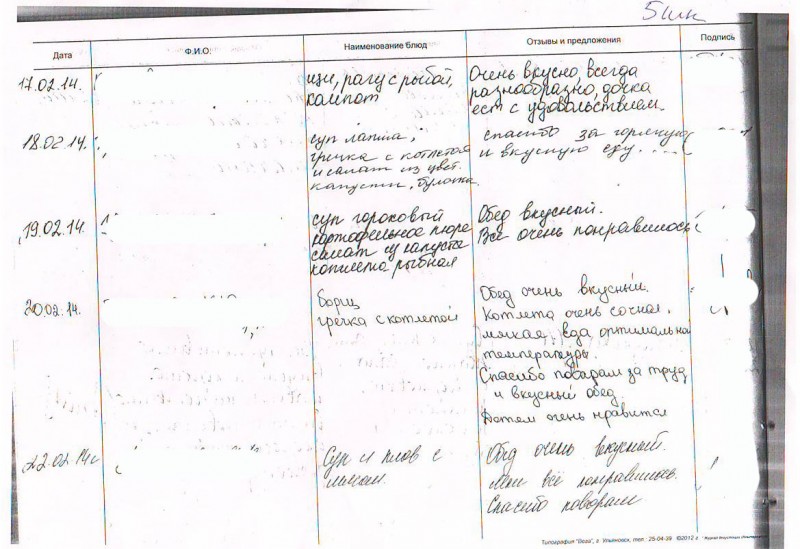 5 шк
Дата Ф.И.О. Наименование блюд Отзывы и предложения Подпись
17.02.14. щи, рагу с рыбой, Очень вкусно, всегда
компот разнообразно, дочка
ест с удовольствием.
18.02.14. суп лапша, спасибо за горячую
гречка с котлетой и вкусную еду....
и салат из цвет.
капусты, булочка.
19.02.14. суп гороховый Обед вкусный.
картофельное пюре Всё очень понравилось
салат из капусты
котлета рыбная
20.02.14. борщ Обед очень вкусный.
гречка с котлетой Котлета очень сочная,
мягкая, еда оптимальной
температуры.
Спасибо поварам за труд
и вкусный обед.
Детям очень нравится
22.02.14г Суп и плов с Обед очень вкусный.
мясом. Мне всё понравилось.
Спасибо поварам
Типография "Вега", г. Ульяновск, тел.: 25-04-39 ©2012 г.